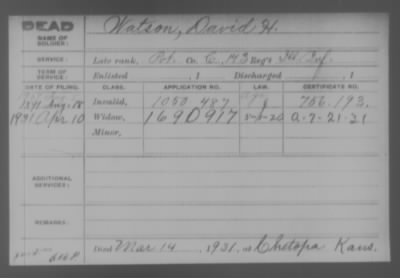 DEAD
NAME OF SOLDIER:
Watson, David H.
SERVICE:
Late rank, Pvt. Co. C, 143 Reg't Ill. Inf.
TERM OF SERVICE:
Enlisted , 1 Discharged , 1
DATE OF FILING. CLASS. APPLICATION NO. LAW. CERTIFICATE NO.
1891 Aug. 18 Invalid, 1050 487 756.193.
1931 Apr 10 Widow, 1690917 A-7-21-31
Minor,
ADDITIONAL SERVICES:
REMARKS:
Died Mar 14, 1931, at Chetopa Kans.